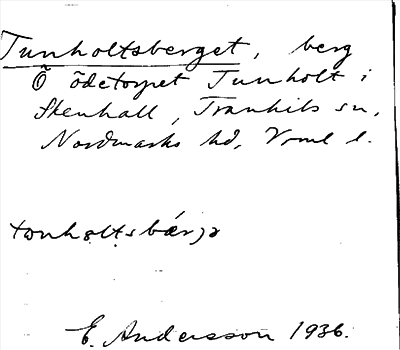 Tunholtsberget, berg
Ö ödetorpet Tunholt i
Stenhall, Trankils sn,
Nordmarks hd, Vrml l.
tonhəḷtsbǽrjə
E. Andersson 1936.